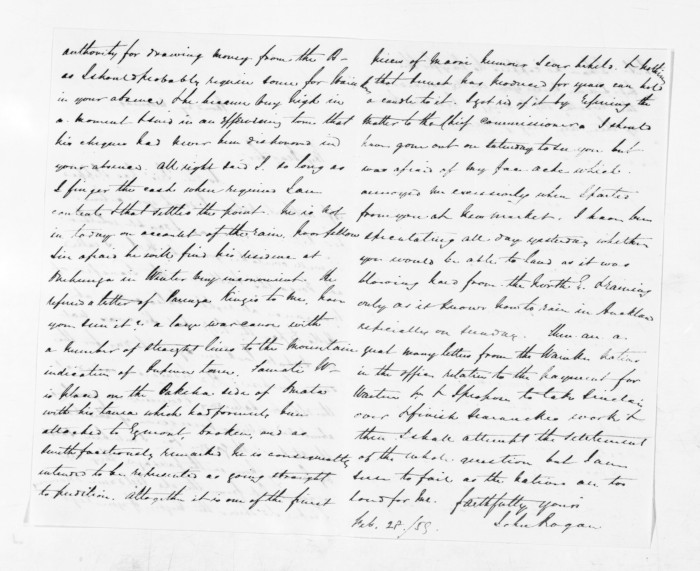 authority for drawing money from the B-
as I should probably require some for
in your absence & he became very high in
a moment & said in an oppressive tone that
his cheques had never been dishonored in
your absence. All right said I. so long as
I finger the cash when required I am
content & that settles the point. he is not
in today on account of the rain, poor fellow
I'm afraid he will find his residence at
Onehunga in Winter very inconvenient. He
referred a letter of Parenga Kingis to me, have
you seen it? a large war canoe with
a number of straight lines to the mountain
indication of . Tamate W-
is placed on the Pakeha side of
with his which had formerly been
attached to Egmont, broken, and as
Smith facetiously remarked he is consequently
intended to be represented as going straight
to perdition. Altogether it is one of the finest
pieces of Maori humour I ever beheld. & nothing
that has produced for years can hold
a candle to it. I got rid of it by referring the
matter to the Chief Commissioner. I should
have gone out on Saturday to see you but
was afraid of my face ache which
annoyed me excessively when I parted
from you at Newmarket. I have been
speculating all day yesterday whether
you would be able to land as it was
blowing hard from the North E. & raining
only as it knows how to rain in Auckland
especially on Sunday. There are a
great many letters from the natives
in the office relative to the payment for
& I propose to take Sinclair
over & finish work &
then I shall attempt the settlement
of the whole question but I am
sure to fail as the natives are too
for me. Faithfully yours
Feb. 28./59 John Rogan